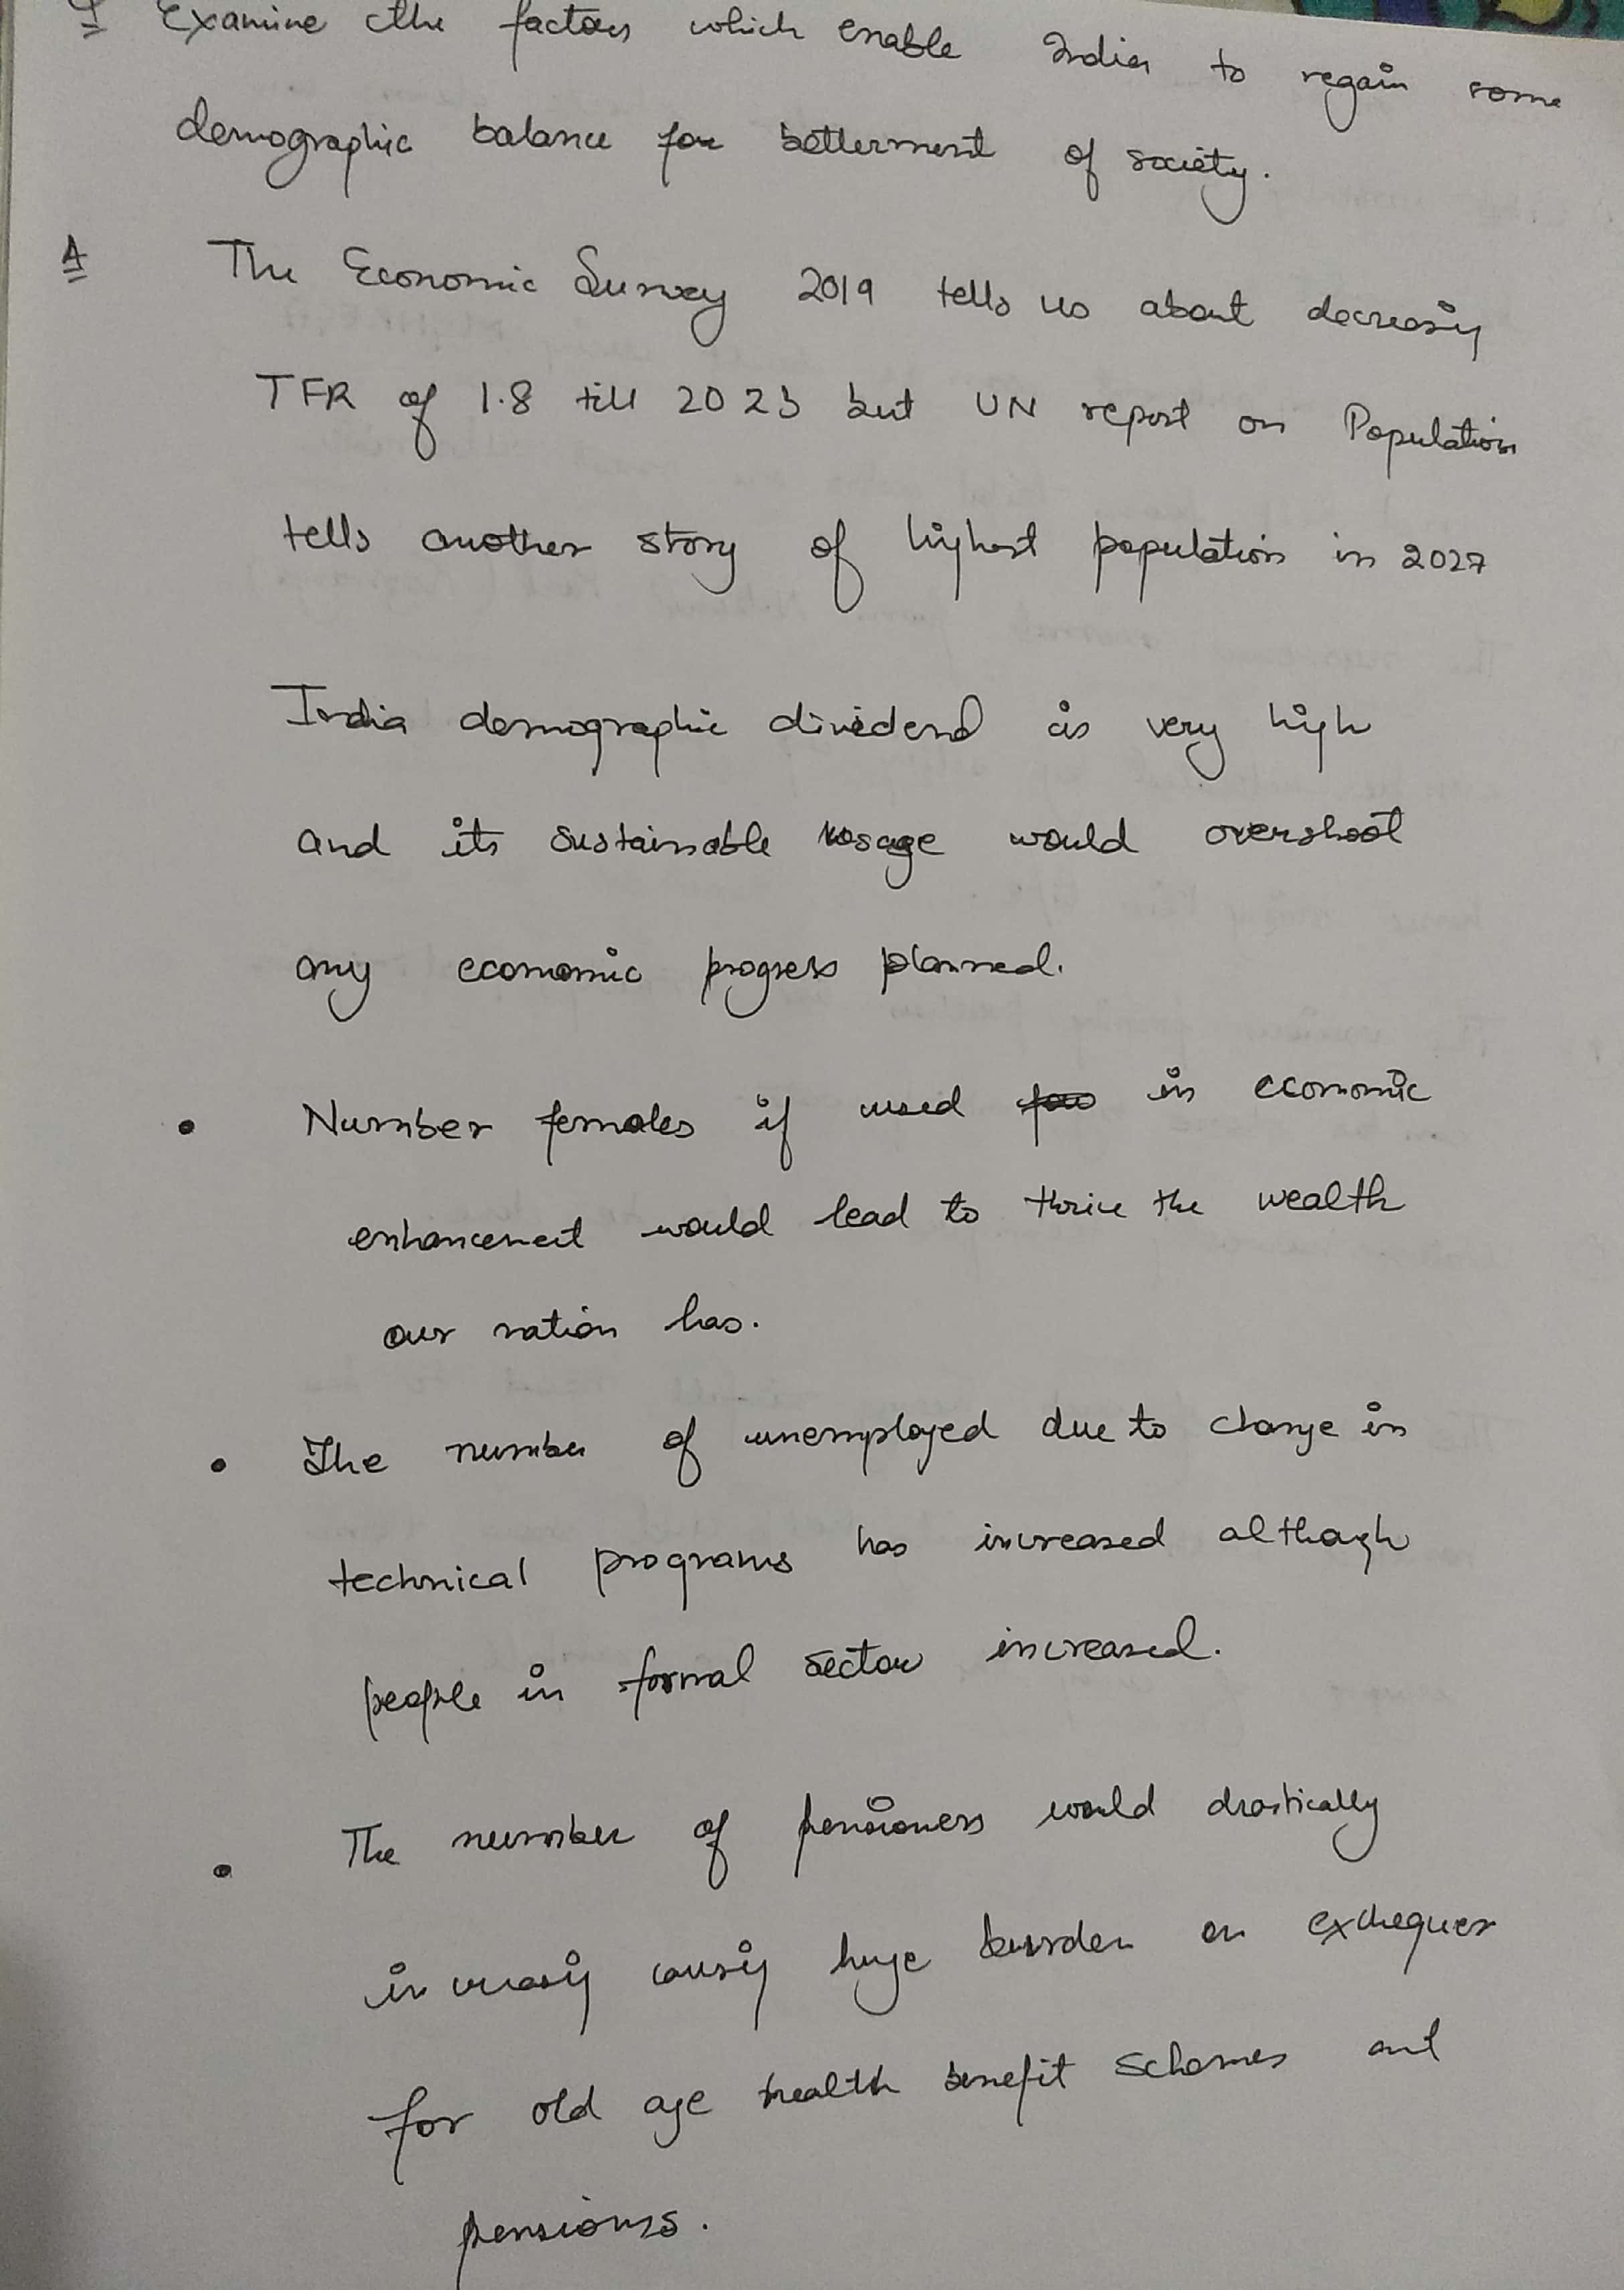 Q Examine the factors which enable India to regain some
demographic balance for betterment of society.
A The Economic Survey 2019 tells us about decreasing
TFR of 1.8 till 2023 but UN report on Population
tells another story of highest population in 2027
India demographic dividend is very high
and its sustainable usage would overshoot
any economic progress planned.
• Number females if used for in economic
enhancement would lead to thrice the wealth
our nation has.
• The number of unemployed due to change in
technical programs has increased although
people in formal sector increased.
• The number of pensioners would drastically
increasing causing huge burden on exchequer
for old age health benefit schemes and
pensions.